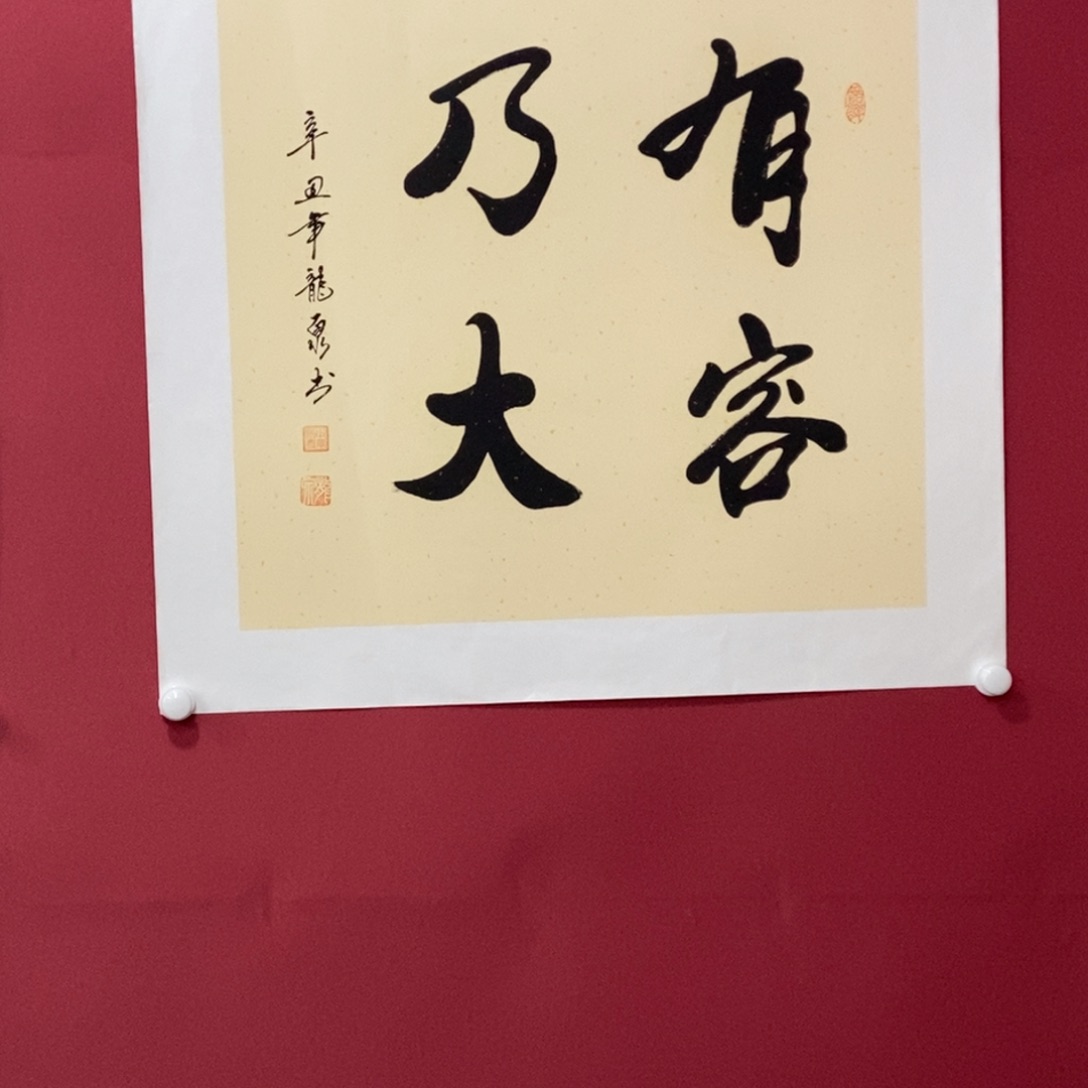 有容
乃大
辛丑年龍泉书